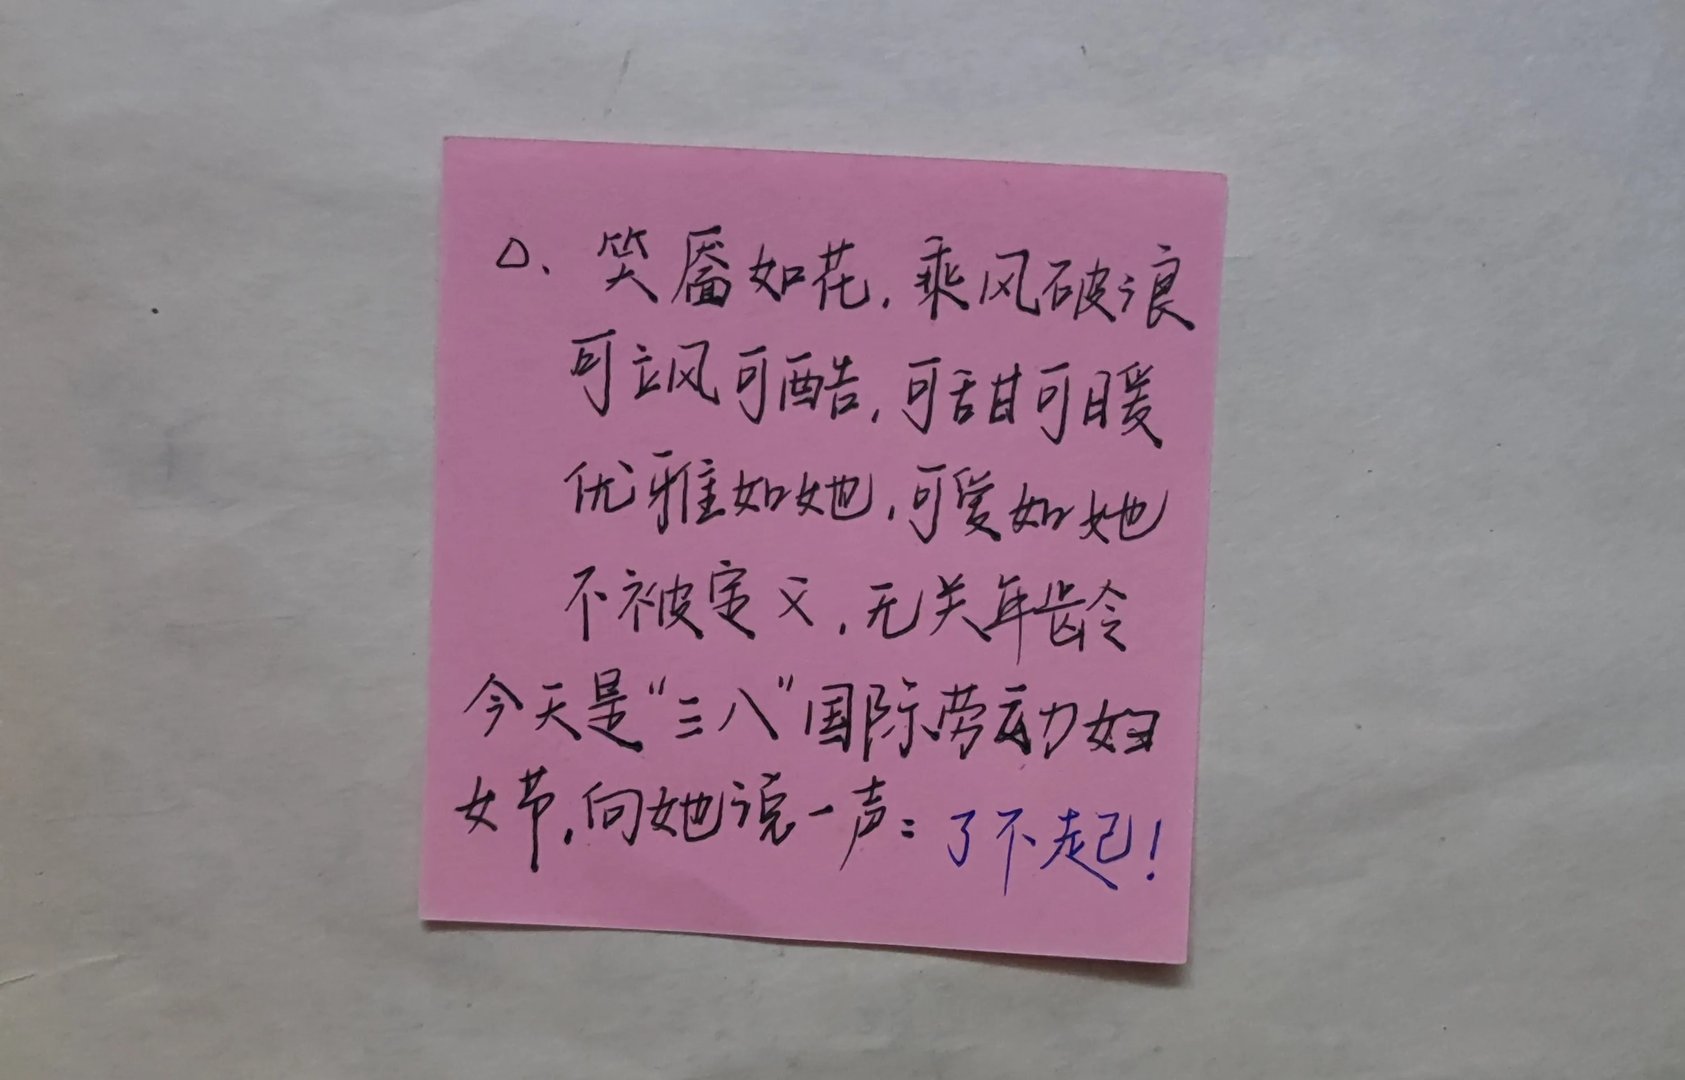 △、笑靥如花,乘风破浪
可飒可酷,可甜可暖
优雅如她,可爱如她
不被定义,无关年龄
今天是“三八”国际劳动妇
女节,向她说一声:了不起!